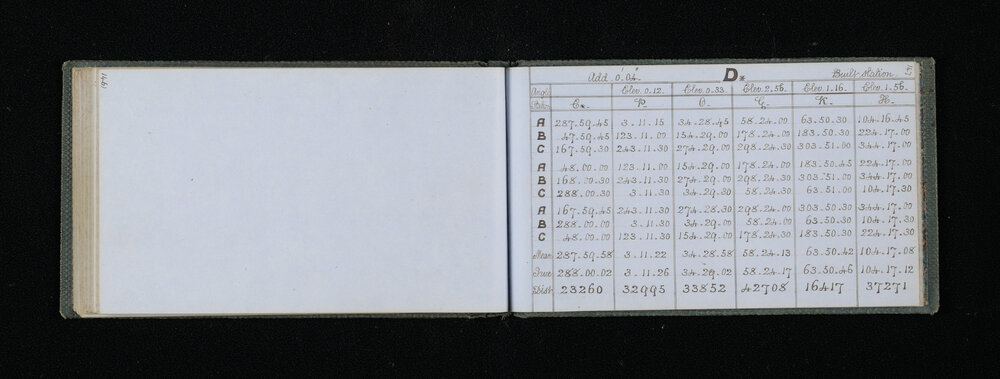 Add 0.04. D* Built Station. 5
Angle Elev. 0.12. Elev. 0.33 Elev. 2.56. Elev. 1.16. Elev. 1.56.
Station C*. P. O. G. K. H.
A 287.59.45 3.11.15 34.28.45 58.24.00 63.50.30 104.16.45
B 47.59.45 123.11.00 154.29.00 178.24.00 183.50.30 224.17.00
C 167.59.30 243.11.30 274.29.00 298.24.30 303.51.00 344.17.00
A 48.00.00 123.11.00 154.29.00 178.24.00 183.50.45 224.17.00
B 168.00.30 243.11.30 274.29.30 298.24.30 303.51.00 344.17.00
C 288.00.30 3.11.30 34.29.30 58.24.30 63.51.00 104.17.30
A 167.59.45 243.11.30 274.28.30 298.24.00 303.50.30 344.17.00
B 288.00.00 3.11.30 34.29.00 58.24.00 63.50.30 104.17.30
C 48.00.00 123.11.30 154.29.00 178.24.30 183.50.30 224.17.30
Mean 287.59.58 3.11.22 34.28.58 58.24.13 63.50.42 104.17.08
True 288.00.02 3.11.26 34.29.02 58.24.17 63.50.46 104.17.12
Dist 23260 32995 33852 42708 16417 37271